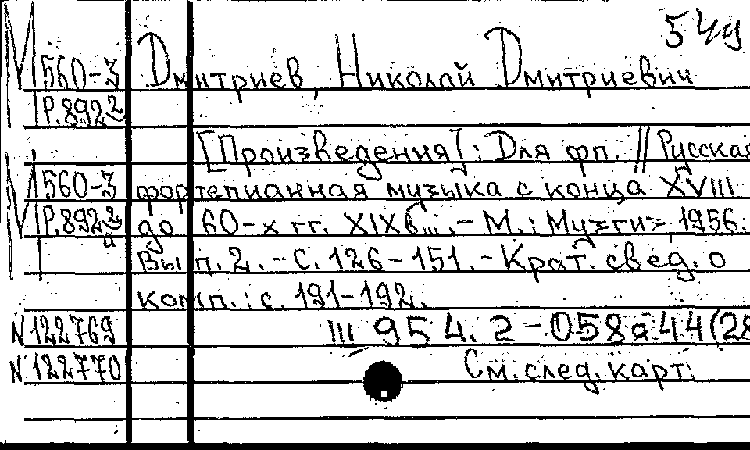 549
М 560-3 Дмитриев, Николай Дмитриевич
Р.892 2
[Произведения]: Для фп. // Русская
М 560-3 фортепианная музыка с конца XVIII
Р.892 2 до 60-х гг. XIX в... .- М.: Музгиз, 1956.
Вып. 2. - С. 126-151. - Крат. свед. о
комп.: с. 191-192.
N 122769 Ш 954. 2-058а44(28
N 122770 См. след. карт.